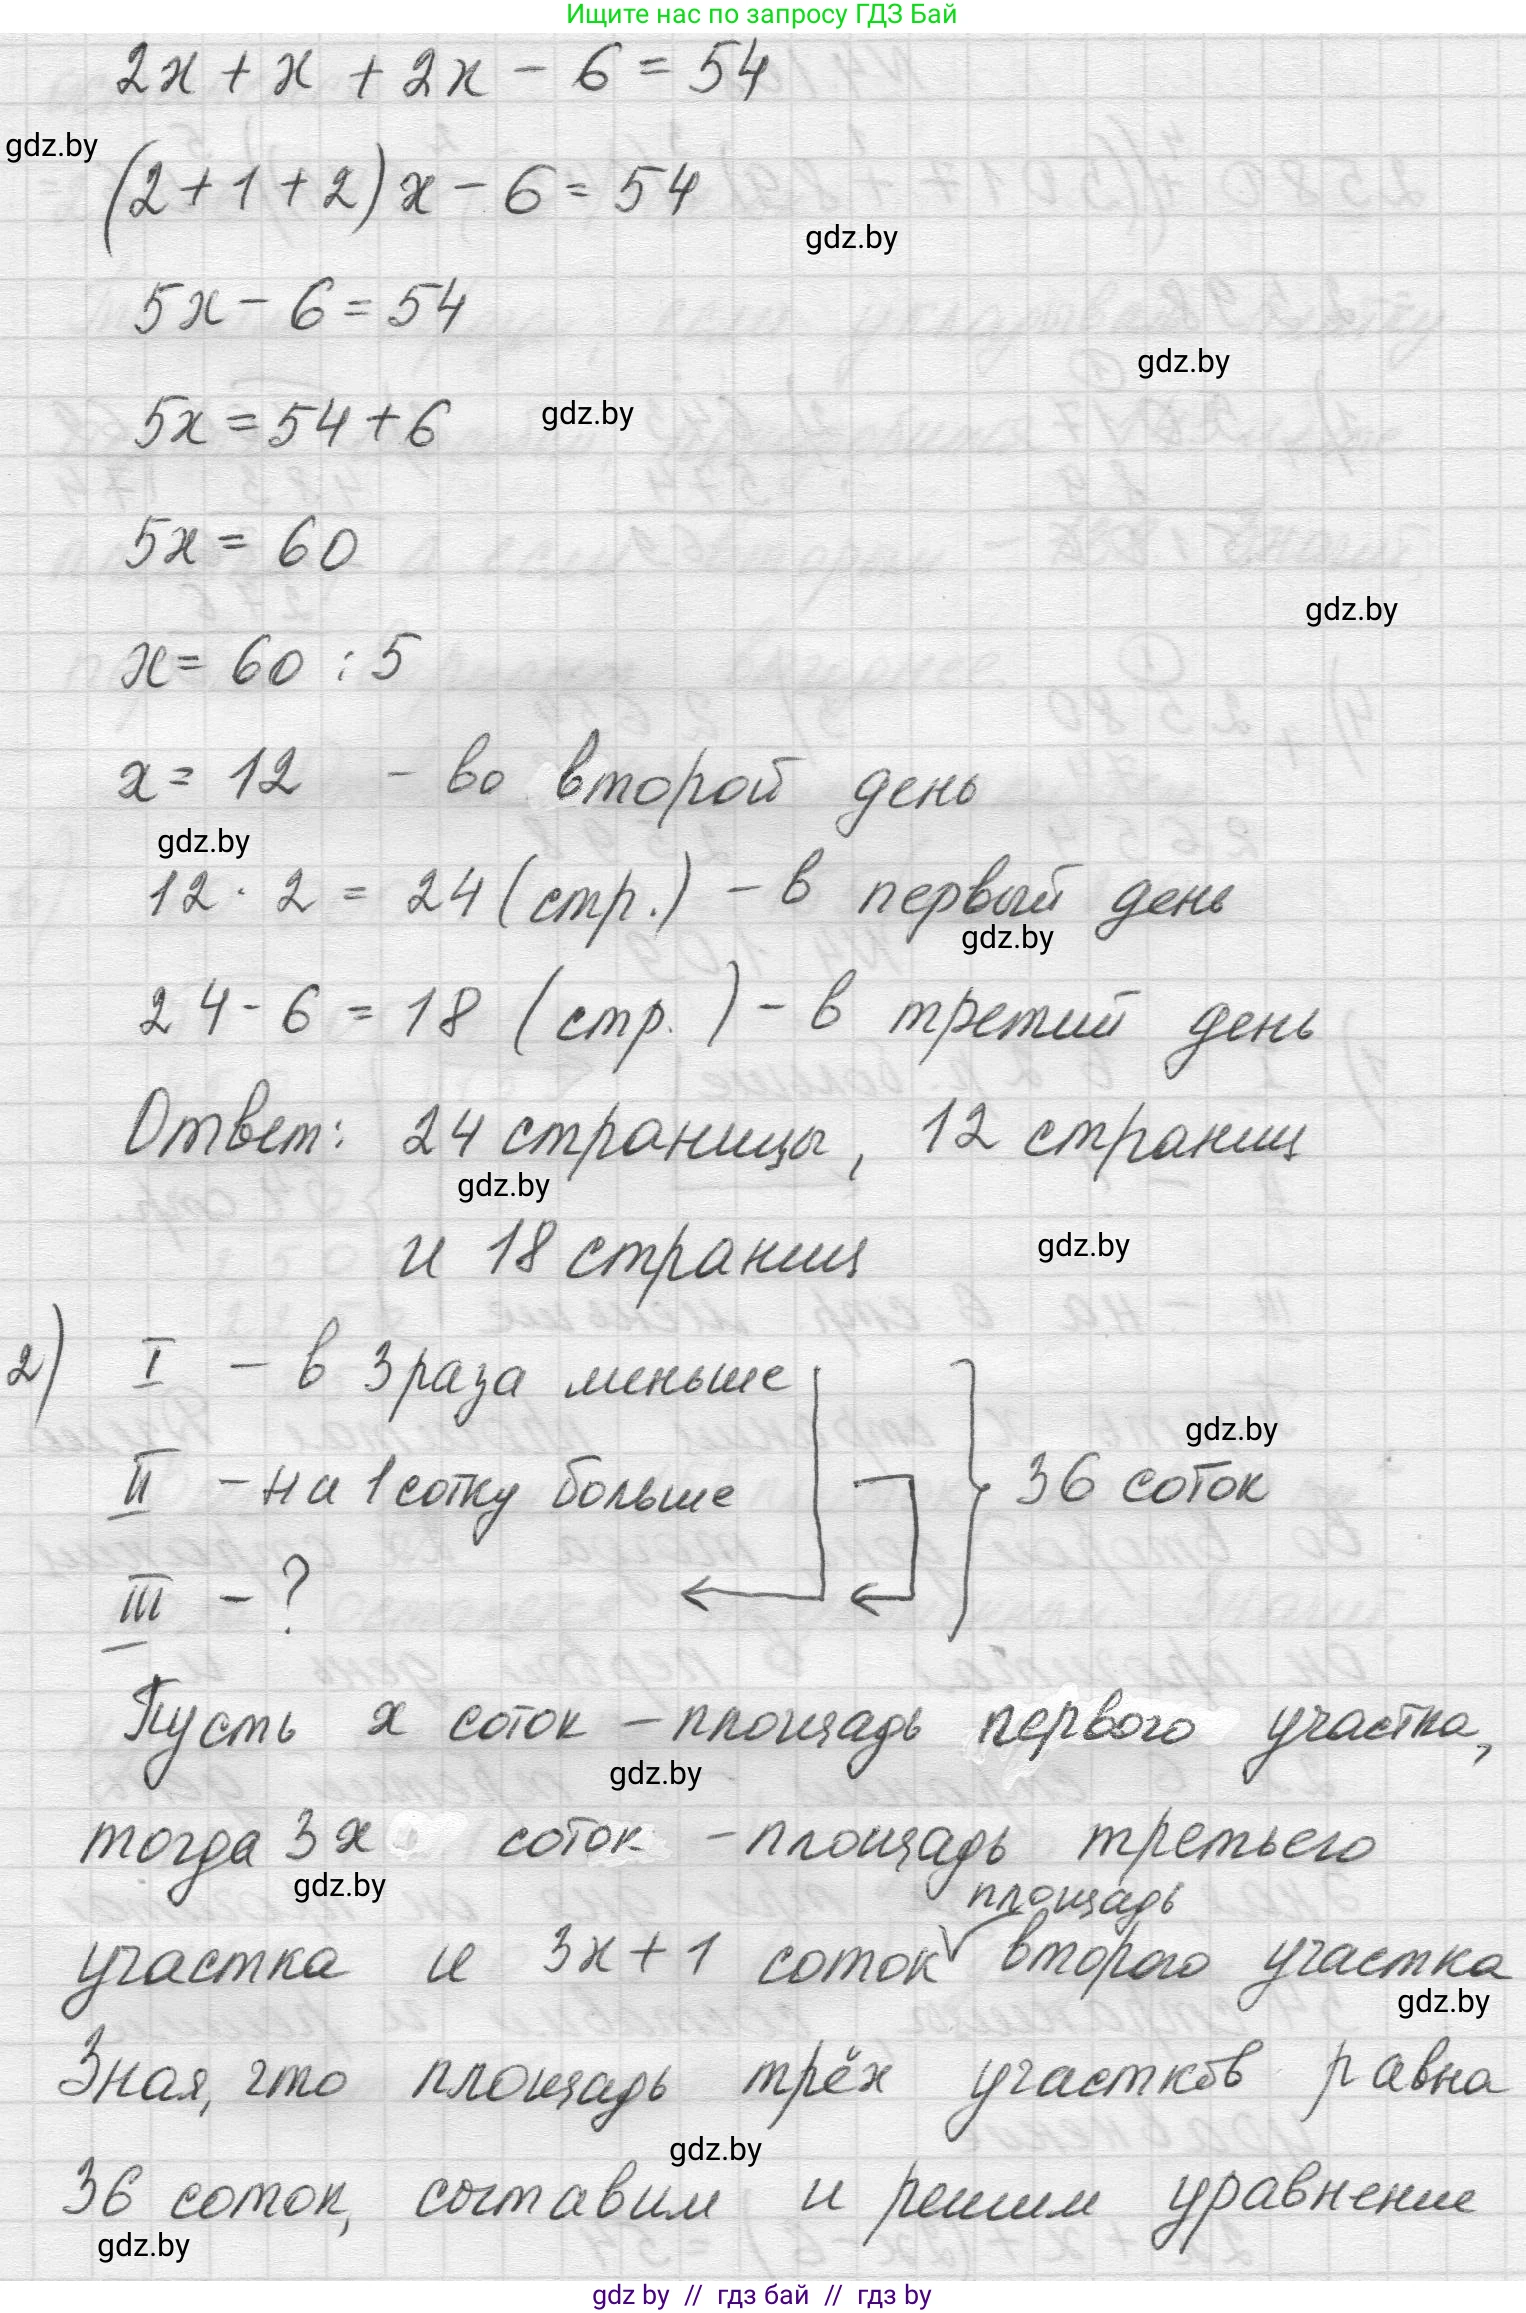 Ищите нас по запросу ГДЗ Бай
2x + x + 2x - 6 = 54
gdz.by
(2 + 1 + 2) x - 6 = 54
gdz.by
5x - 6 = 54
gdz.by
5x = 54 + 6
gdz.by
5x = 60
gdz.by
x = 60 : 5
x = 12 - во второй день
gdz.by
12 · 2 = 24 (стр.) - в первый день
gdz.by
24 - 6 = 18 (стр.) - в третий день
Ответ: 24 страницы, 12 страниц
gdz.by
и 18 страниц
gdz.by
2) I - в 3 раза меньше
gdz.by
II - на 1 сотку больше
36 соток
III - ?
Пусть x соток - площадь первого участка,
gdz.by
тогда 3x соток - площадь третьего
gdz.by
площадь
участка и 3x + 1 соток второго участка
gdz.by
Зная, что площадь трёх участков равна
gdz.by
36 соток, составим и решим уравнение
gdz.by
gdz by // гдз бай // гдз by